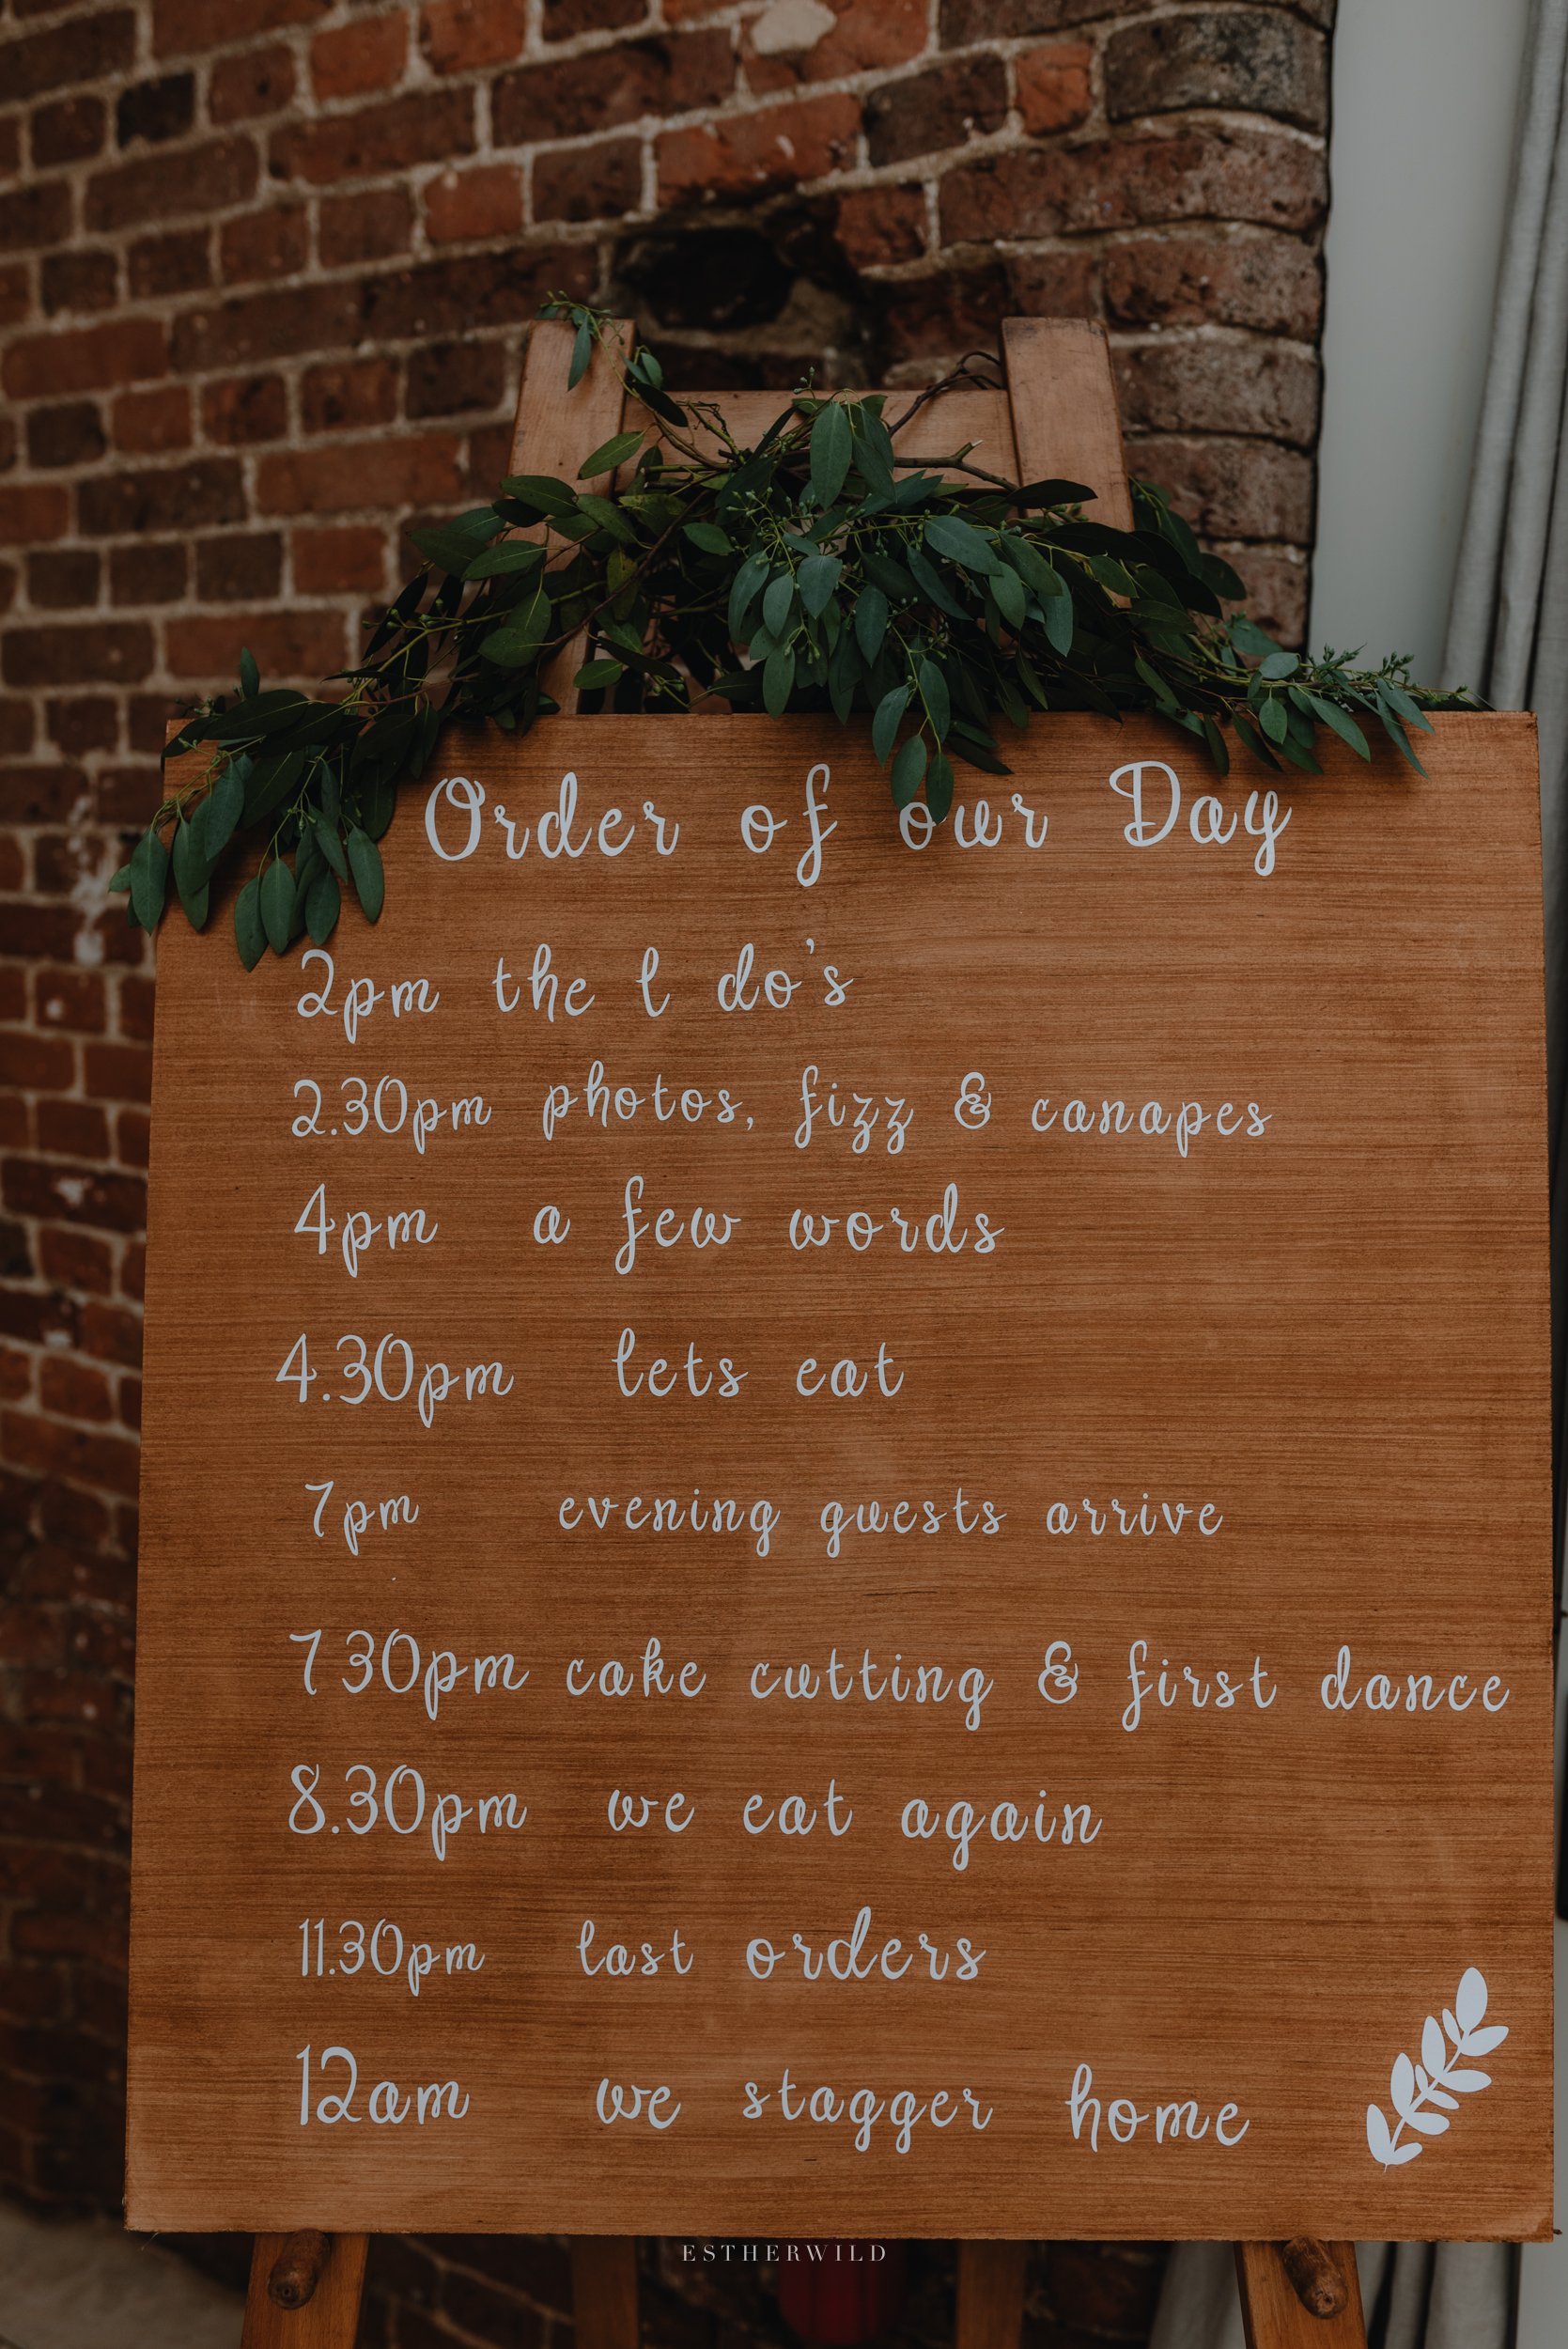 Order of our Day
2pm the I do's
2.30pm photos, fizz & canapes
4pm a few words
4.30pm lets eat
7pm evening guests arrive
7 30pm cake cutting & first dance
8.30pm we eat again
11.30pm last orders
12am we stagger home
ESTHERWILD